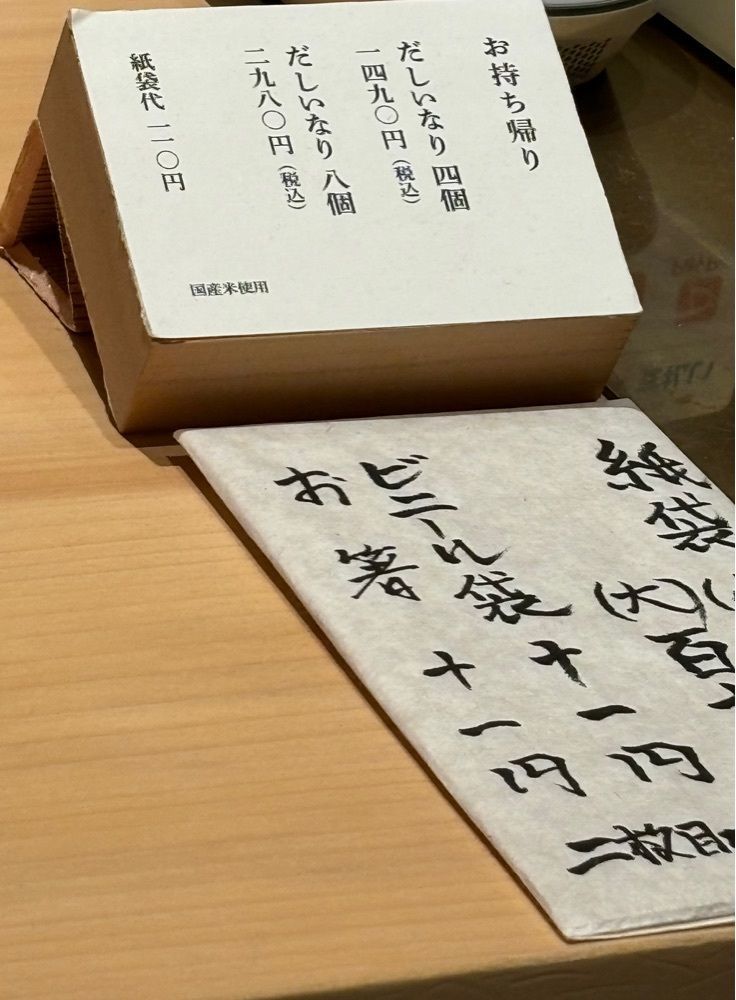 お持ち帰り
だしいなり 四個
一四九〇円(税込)
だしいなり 八個
二九八〇円(税込)
紙袋代 一一〇円
国産米使用
紙袋(大) 百
ビニール袋 十一円
お箸 十一円
二枚目